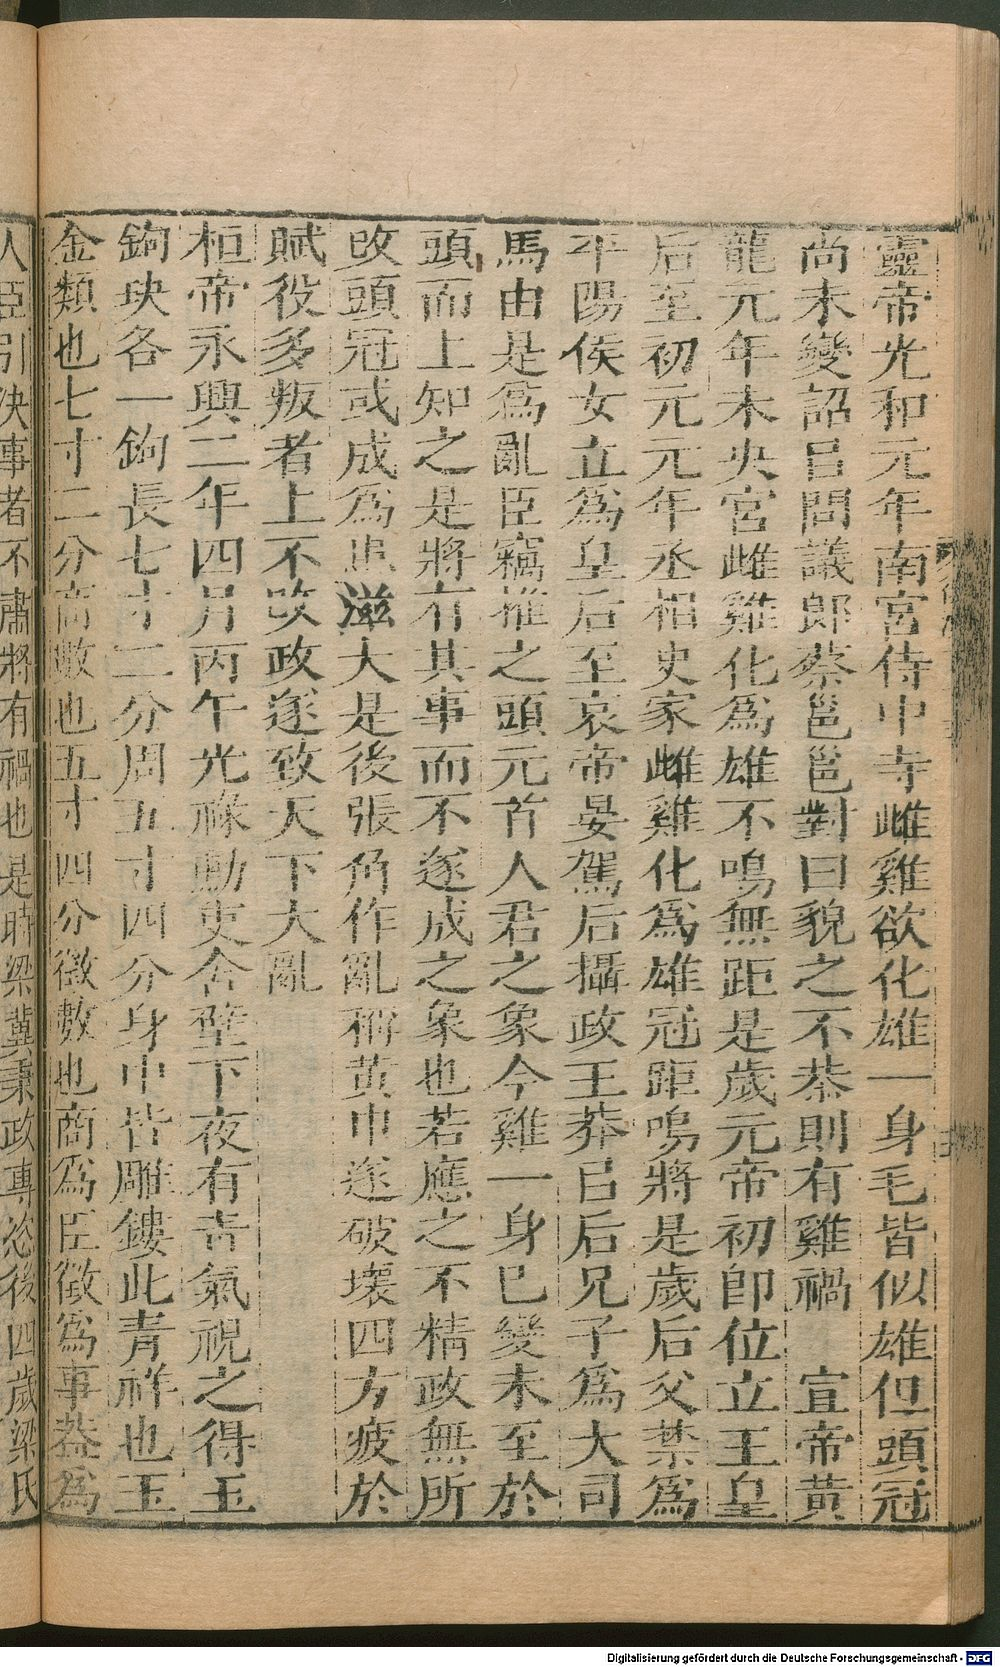 靈帝光和元年南宮侍中寺雌雞欲化雄一身毛皆似雄但頭冠
尚未變詔㠯問議郎蔡邕邕對曰貌之不恭則有雞禍　宣帝黃
龍元年未央宮雌雞化爲雄不鳴無距是歲元帝初卽位立王皇
后至初元元年丞相史家雌雞化爲雄冠距鳴將是歲后父禁爲
平陽侯女立爲皇后至哀帝晏駕后攝政王莽㠯后兄子爲大司
馬由是爲亂臣竊權之頭元首人君之象今雞一身已變未至於
頭而上知之是將有其事而不遂成之象也若應之不精政無所
改頭冠或成爲患滋大是後張角作亂稱黃巾遂破壞四方疲於
賦役多叛者上不改政遂致天下大亂
桓帝永興二年四月丙午光祿勳吏舍壁下夜有青氣視之得玉
鉤玦各一鉤長七寸二分周五寸四分身中皆雕鏤此青祥也玉
金類也七寸二分商數也五寸四分徵數也商爲臣徵爲事葢爲
人臣引決事者不肅將有禍也是時梁冀秉政專恣後四歲梁氏
Digitalisierung gefördert durch die Deutsche Forschungsgemeinschaft - DFG